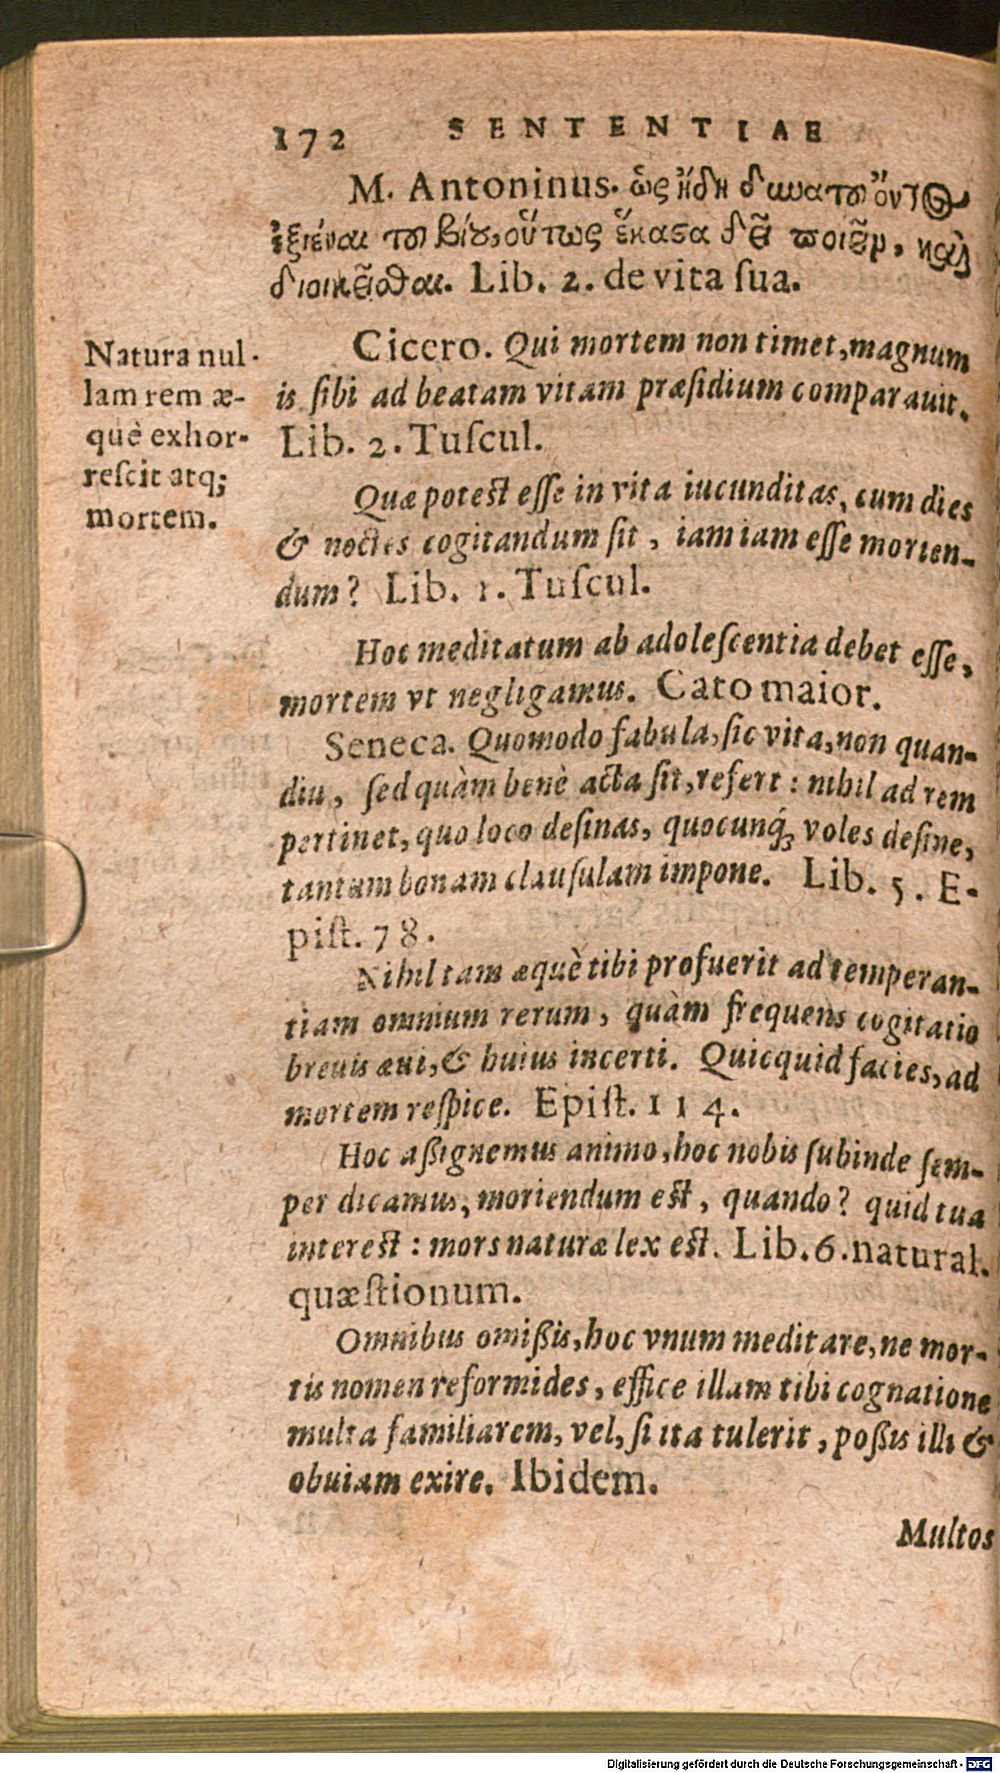 172 SENTENTIAE
M. Antoninus. ὡς ἤδη δυνατοῦ ὄντ⊕
ἐξιέναι τοῦ βίου, οὕτως ἕκαστα δεῖ ποιεῖν, καὶ
διοικεῖσθαι. Lib. 2. de vita ſua.
Natura nul-
lam rem æ-
què exhor-
reſcit atq;
mortem.
Cicero. Qui mortem non timet, magnum
is ſibi ad beatam vitam præſidium comparauit.
Lib. 2. Tuſcul.
Quæ poteſt eſſe in vita iucunditas, cum dies
& noctes cogitandum ſit, iam iam eſſe morien-
dum? Lib. 1. Tuſcul.
Hoc meditatum ab adoleſcentia debet eſſe,
mortem vt negligamus. Cato maior.
Seneca. Quomodo fabula, ſic vita, non quan-
diu, ſed quàm benè acta ſit, refert: nihil ad rem
pertinet, quo loco deſinas, quocunq́; voles deſine,
tantum bonam clauſulam impone. Lib. 5. E-
piſt. 78.
Nihil tam æquè tibi profuerit ad temperan-
tiam omnium rerum, quàm frequens cogitatio
breuis æui, & huius incerti. Quicquid facies, ad
mortem reſpice. Epiſt. 114.
Hoc aßignemus animo, hoc nobis ſubinde ſem-
per dicamus, moriendum eſt, quando? quid tua
intereſt: mors naturæ lex eſt. Lib. 6. natural.
quæſtionum.
Omnibus omißis, hoc vnum meditare, ne mor-
tis nomen reformides, effice illam tibi cognatione
multa familiarem, vel, ſi ita tulerit, poßis illi &
obuiam exire. Ibidem.
Multos
Digitalisierung gefördert durch die Deutsche Forschungsgemeinschaft - DFG